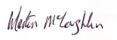 Martin McLaughlin